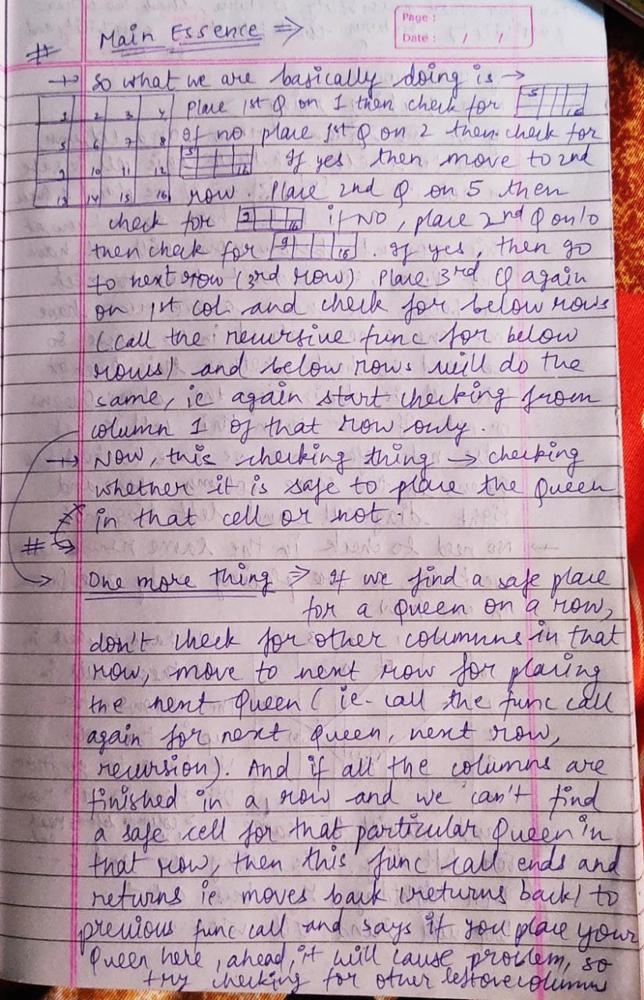 Page :
Date : / /
# Main Essence ⇒
→ So what we are basically doing is →
1 2 3 4 Place 1st Q on 1 then check for 5 16
5 6 7 8 If no place 1st Q on 2 then check for
9 10 11 12 5 12 If yes then move to 2nd
13 14 15 16 row. Place 2nd Q on 5 then
check for 16 if NO, place 2nd Q on 10
then check for 9 16. If yes, then go
to next row (3rd row) Place 3rd Q again
on 1st col and check for below rows
(call the recursive func for below
rows) and below rows will do the
same, ie again start checking from
column 1 of that row only.
→ Now, this checking thing → checking
whether it is safe to place the Queen
in that cell or not.
#
One more thing ⇒ If we find a safe place
for a Queen on a row,
don't check for other columns in that
row, move to next row for placing
the next Queen (ie- call the func call
again for next Queen, next row,
recursion). And if all the columns are
finished in a row and we can't find
a safe cell for that particular Queen in
that row, then this func call ends and
returns ie moves back (returns back) to
previous func call and says if you place your
Queen here, ahead, it will cause problem, so
try checking for other leftover columns